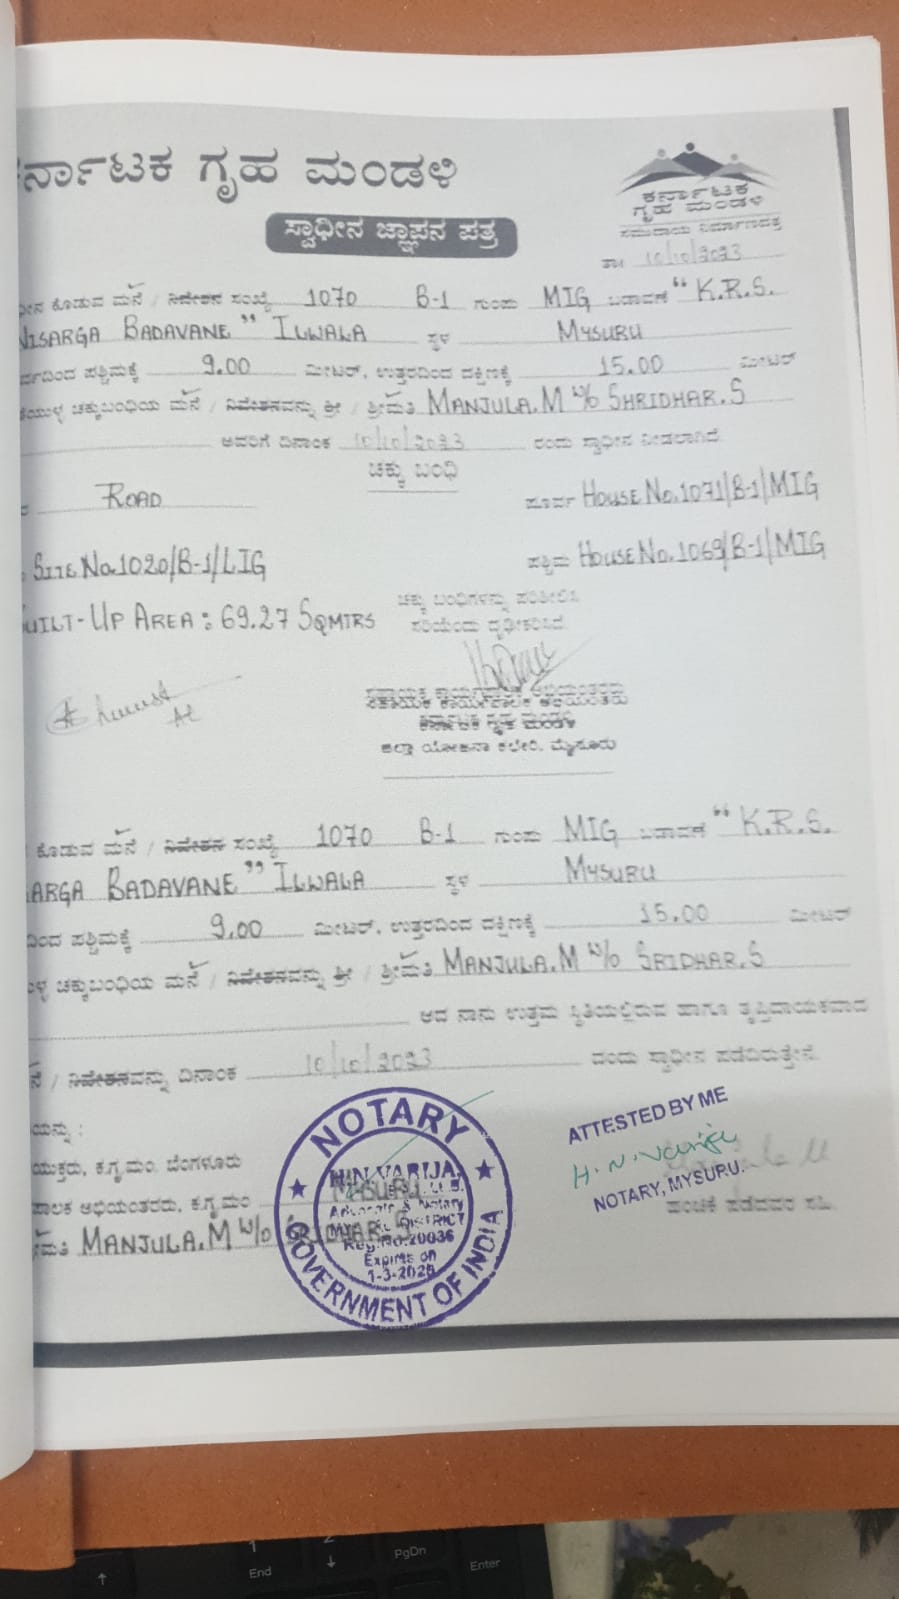 ರ್ನಾಟಕ ಗೃಹ ಮಂಡಳಿ
ಕರ್ನಾಟಕ
ಗೃಹ ಮಂಡಳಿ
ಸಮುದಾಯ ನಿರ್ಮಾಣದತ್ತ
ಸ್ವಾಧೀನ ಜ್ಞಾಪನ ಪತ್ರ
ತಾ: 10/10/2023
ಕೊಡುವ ಮನೆ / ನಿವೇಶನ ಸಂಖ್ಯೆ 1070 B-1 ಗುಂಪು MIG ಬಡಾವಣೆ "K.R.S.
NISARGA BADAVANE" ILWALA ಸ್ಥಳ MYSURU
ಪಶ್ಚಿಮಕ್ಕೆ 9.00 ಮೀಟರ್, ಉತ್ತರದಿಂದ ದಕ್ಷಿಣಕ್ಕೆ 15.00 ಮೀಟರ್
ಚಕ್ಕುಬಂಧಿಯ ಮನೆ / ನಿವೇಶನವನ್ನು ಶ್ರೀ / ಶ್ರೀಮತಿ MANJULA.M W/o SHRIDHAR.S
ಅವರಿಗೆ ದಿನಾಂಕ 10/10/2023 ರಂದು ಸ್ವಾಧೀನ ನೀಡಲಾಗಿದೆ.
ಚಕ್ಕು ಬಂಧಿ
ROAD ಪೂರ್ವ HOUSE No.1071/B-1/MIG
SITE No.1020/B-1/LIG ಪಶ್ಚಿಮ HOUSE No.1069/B-1/MIG
UILT-UP AREA: 69.27 SQMTRS
ಚಕ್ಕು ಬಂಧಿಗಳನ್ನು ಪರಿಶೀಲಿಸಿ
ಸರಿಯೆಂದು ದೃಢೀಕರಿಸಿದೆ.
ಸಹಾಯಕ ಕಾರ್ಯಪಾಲಕ ಅಭಿಯಂತರರು
ಕರ್ನಾಟಕ ಗೃಹ ಮಂಡಳಿ
ಜಿಲ್ಲಾ ಯೋಜನಾ ಕಛೇರಿ, ಮೈಸೂರು
ಕೊಡುವ ಮನೆ / ನಿವೇಶನ ಸಂಖ್ಯೆ 1070 B-1 ಗುಂಪು MIG ಬಡಾವಣೆ "K.R.S.
ARGA BADAVANE" ILWALA ಸ್ಥಳ MYSURU
ದಿಂದ ಪಶ್ಚಿಮಕ್ಕೆ 9.00 ಮೀಟರ್, ಉತ್ತರದಿಂದ ದಕ್ಷಿಣಕ್ಕೆ 15.00 ಮೀಟರ್
ಚಕ್ಕುಬಂಧಿಯ ಮನೆ / ನಿವೇಶನವನ್ನು ಶ್ರೀ / ಶ್ರೀಮತಿ MANJULA.M W/o SRIDHAR.S
ಆದ ನಾನು ಉತ್ತಮ ಸ್ಥಿತಿಯಲ್ಲಿರುವ ಹಾಗೂ ತೃಪ್ತಿದಾಯಕವಾದ
ನೆ / ನಿವೇಶನವನ್ನು ದಿನಾಂಕ 10/10/2023 ರಂದು ಸ್ವಾಧೀನ ಪಡೆದಿರುತ್ತೇನೆ.
ಯನ್ನು :
ಯುಕ್ತರು, ಕ.ಗೃ.ಮಂ. ಬೆಂಗಳೂರು
ಪಾಲಕ ಅಭಿಯಂತರರು, ಕ.ಗೃ.ಮಂ MYSURU
ಮತಿ MANJULA.M W/o SRIDHAR.S
NOTARY
H.N.VARIJA
LL.B.
Advocate & Notary
DISTRICT
Reg.No.20036
Expires on
1-3-2028
GOVERNMENT OF INDIA
ATTESTED BY ME
H.N.Varija
NOTARY, MYSURU.
ಪಡೆದವರ ಸಹಿ
1
End
2
PgDn
Enter